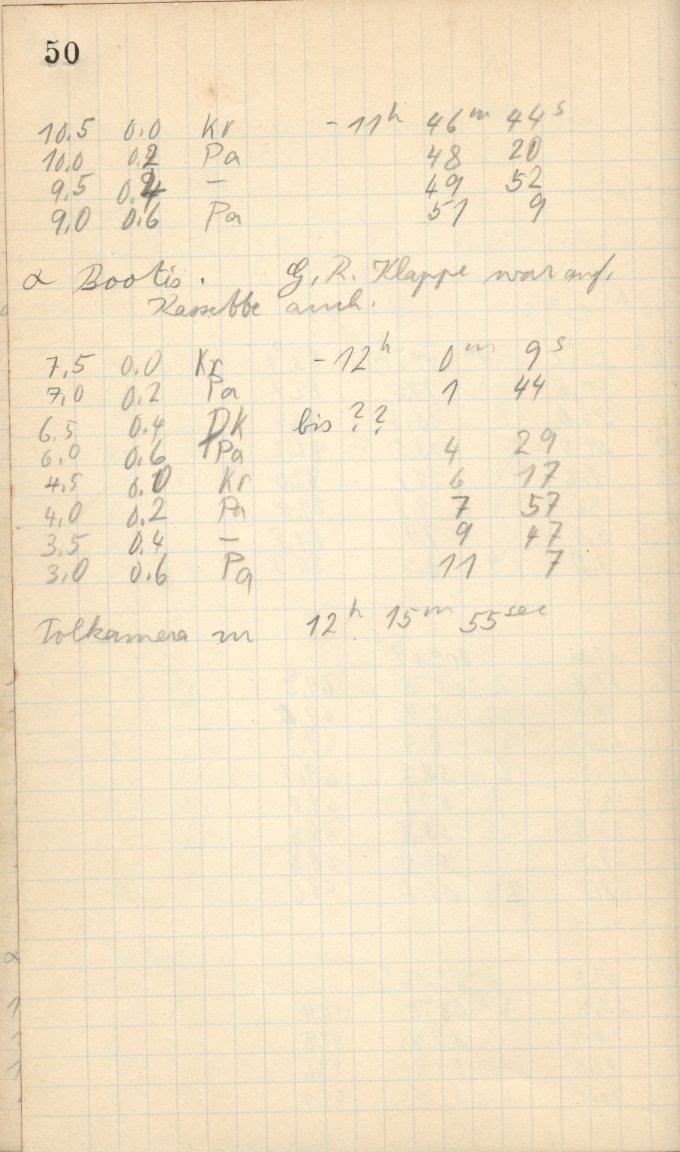 50
10,5 0.0 Kr - 11h 46m 44s
10,0 0.2 Pa 48 20
9,5 0.4 — 49 52
9,0 0.6 Pa 51 9
α Bootis. G, R. Klappe war auf,
Kassette auch.
7,5 0.0 Kr - 12h 0m 9s
7,0 0.2 Pa 1 44
6,5 0.4 DK bis ??
6,0 0.6 Pa 4 29
4,5 0.0 Kr 6 17
4,0 0.2 Pa 7 57
3,5 0.4 — 9 47
3,0 0.6 Pa 11 7
12h 15m 55sec